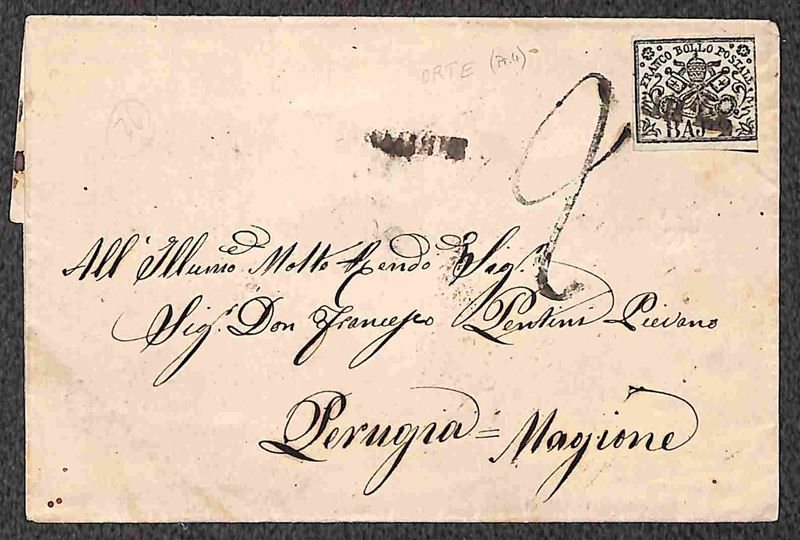 ORTE
20
FRANCO BOLLO POSTALE
BAJ
2
All' Illumo ed Molto Rendo Sigr.
Sigr. Don Francesco Pentini Pievano
Perugia = Magione